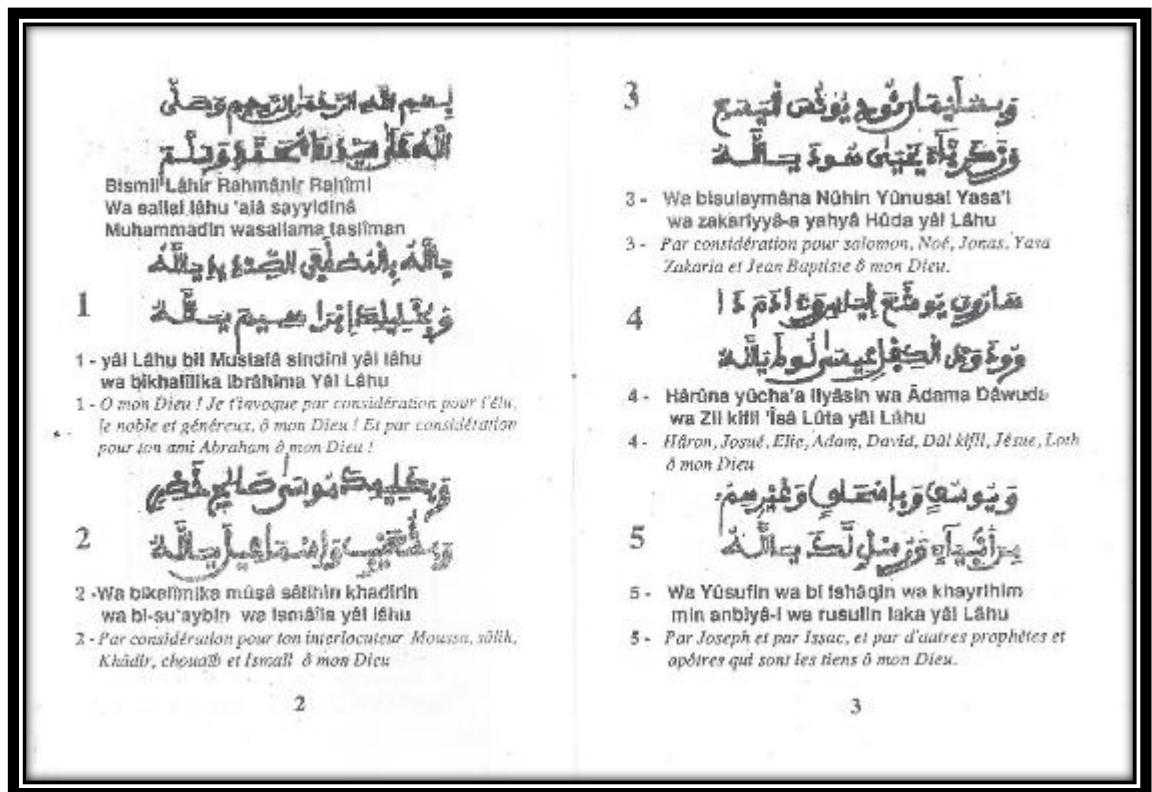 بِسْمِ اللَّهِ الرَّحْمَٰنِ الرَّحِيمِ وَصَلَّى
اللَّهُ عَلَى سَيِّدِنَا مُحَمَّدٍ وَسَلَّمَ
Bismil Lâhir Rahmânir Rahîmi
Wa sallal lâhu 'alâ sayyidinâ
Muhammadin wasallama taslîman
يَاللَّهُ بِالْمُصْطَفَى يَاللَّهُ
1
وَبِخَلِيلِكَ إِبْرَاهِيمَ يَاللَّهُ
1 - yâl Lâhu bil Mustafâ sindîni yâl lâhu
wa bikhalîlika Ibrâhîma Yâl Lâhu
1 - O mon Dieu ! Je t'invoque par considération pour l'élu,
le noble et généreux, ô mon Dieu ! Et par considération
pour ton ami Abraham ô mon Dieu !
وَبِكَلِيمِكَ مُوسَى صَالِحٍ خَضِرٍ
2
وَبِشُعَيْبٍ وَإِسْمَاعِيلَ يَاللَّهُ
2 -Wa bikalîmika mûsâ sâlihin khadirin
wa bi-su'aybin wa Ismâîla yâl lâhu
2 - Par considération pour ton interlocuteur Moussa, sâlih,
Khâdir, chouaïb et Ismaïl ô mon Dieu
2
3
وَبِسُلَيْمَانَ نُوحٍ يُونُسَ الْيَسَعِ
وَزَكَرِيَّاءَ يَحْيَى هُودَ يَاللَّهُ
3 - Wa bisulaymâna Nûhin Yûnusal Yasa'i
wa zakariyyâ-a yahyâ Hûda yâl Lâhu
3 - Par considération pour salomon, Noé, Jonas, Yasa
Zakaria et Jean Baptiste ô mon Dieu.
هَارُونَ يُوشَعَ إِلْيَاسٍ وَءَادَمَ دَا
4
الْكِفْلِ عِيسَى لُوطَ يَاللَّهُ
4 - Hârûna yûcha'a Ilyâsin wa Ādama Dâwuda
wa Zil kifli 'Îsâ Lûta yâl Lâhu
4 - Hâron, Josué, Elie, Adam, David, Dûl kifli, Jésue, Loth
ô mon Dieu
وَيُوسُفٍ وَبِإِسْحَاقٍ وَغَيْرِهِمْ
5
مِنْ أَنْبِيَاءٍ وَرُسْلٍ لَكَ يَاللَّهُ
5 - Wa Yûsufin wa bi Ishâqin wa khayrihim
min anbiyâ-i wa rusulin laka yâl Lâhu
5 - Par Joseph et par Issac, et par d'autres prophètes et
apôtres qui sont les tiens ô mon Dieu.
3